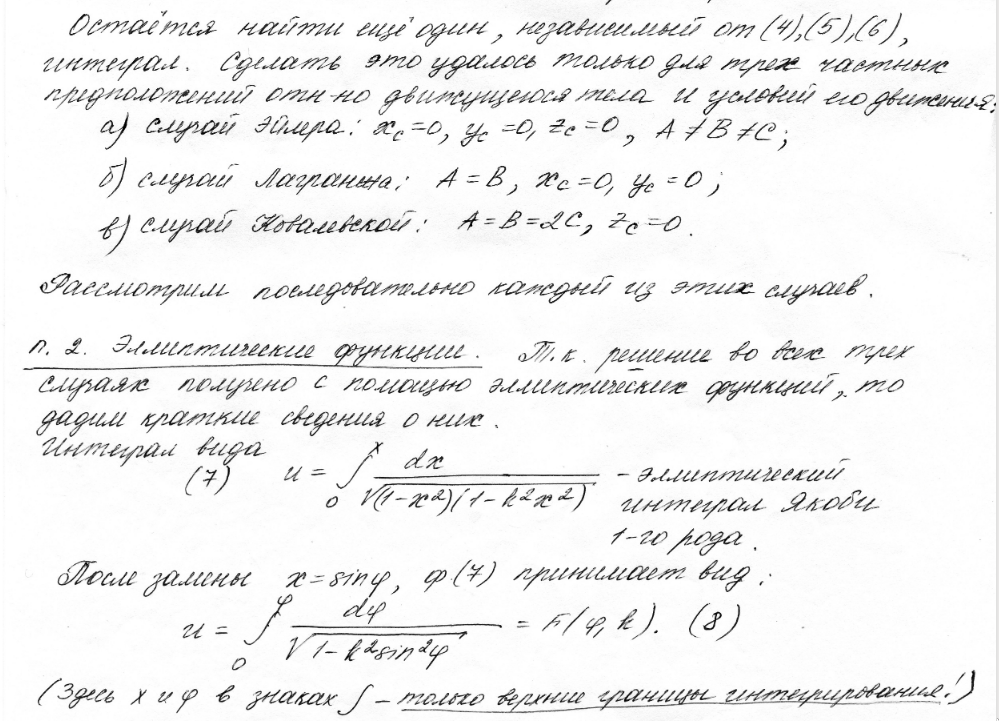 Остаётся найти ещё один, независимый от (4),(5),(6),
интеграл. Сделать это удалось только для трех частных
предположений отн-но движущегося тела и условий его движения:
а) случай Эйлера: x_c=0, y_c=0, z_c=0, A≠B≠C;
б) случай Лагранжа: A=B, x_c=0, y_c=0;
в) случай Ковалевской: A=B=2C, z_c=0.
Рассмотрим последовательно каждый из этих случаев.
п. 2. Эллиптические функции. Т.к. решение во всех трех
случаях получено с помощью эллиптических функций, то
дадим краткие сведения о них.
Интеграл вида
(7) u = ∫₀ˣ dx / √((1-x²)(1-k²x²)) - эллиптический
интеграл Якоби
1-го рода.
После замены x=sinφ, ф.(7) принимает вид:
u = ∫₀^φ dφ / √(1-k²sin²φ) = F(φ,k). (8)
(Здесь x и φ в знаках ∫ - только верхние границы интегрирования!)